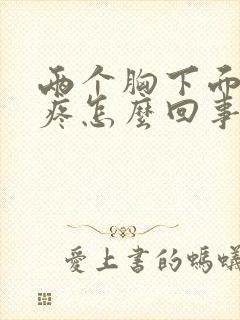 兩个胸下面
疼怎麼回事
愛上書的螞蟻